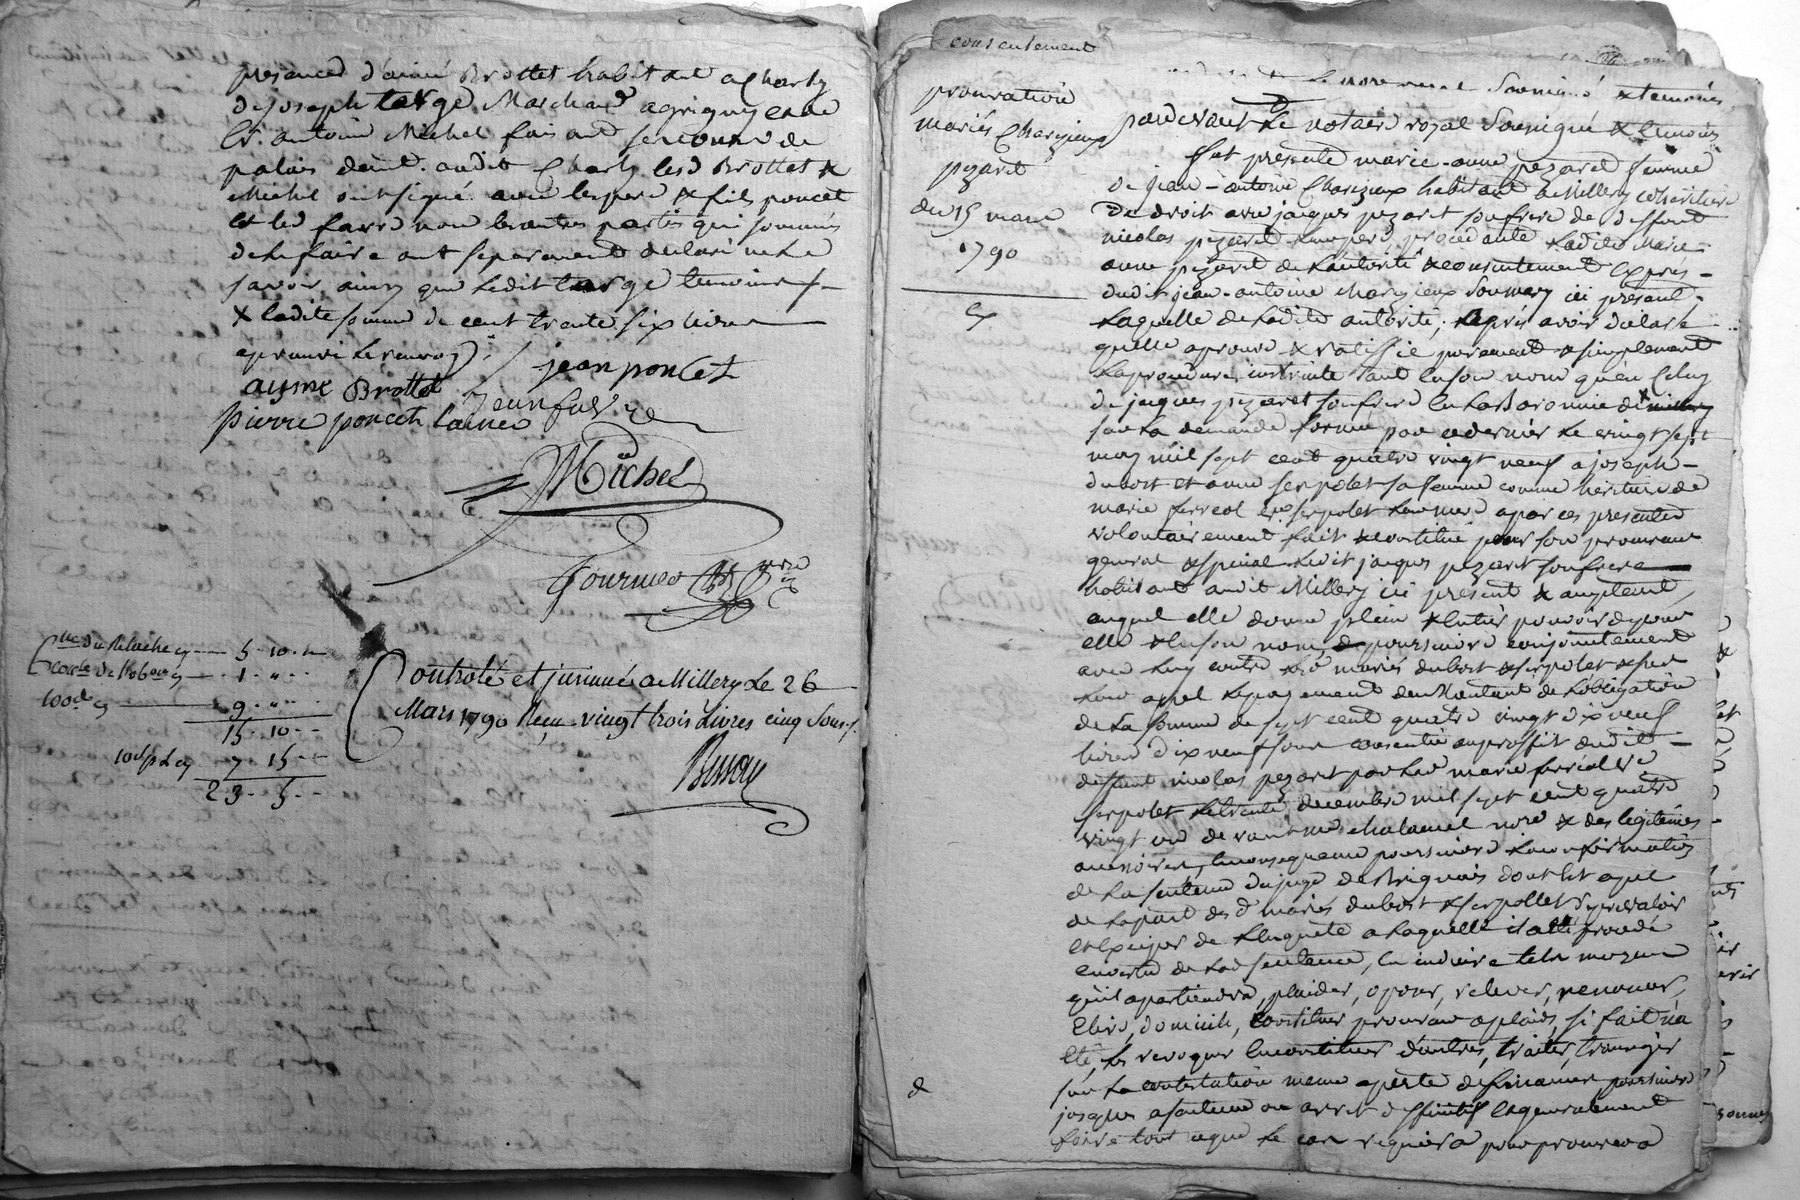 presence d'aimé Brottet habitant a Charly
de joseph targe Marchand a grigny et de
Sr. antoine Michel faisant fonctions de
palais demt. audit Charly lesd Brottet &
Michel ont signé avec les pere & fils poncet
et led favre non les autres parties qui sommés
de le faire ont separement declaré ne le
savoir ainsy que ledit targe temoins
& ladite somme de cent trente six livres
aprouvé le renvoy
jean poncet
aymé Brottet
jean favre
pierre poncet lainé
Michel
Fournier
5 - 10
1
100.e
9
15 - 10
7 - 15
23 - 5
Controlé et insinué a Millery Le 26
Mars 1790 Reçu vingt trois Livres cinq Sous
consentement
procuration
mariés Charezieux
pezaret
du 15 mars
1790
soussigné & temoins
pardevant Le notaire royal Soussigné & temoins
fut presente marie-anne pezaret femme
de jean-antoine Charezieux habitant a Millery cohéritiere
de droit avec jacques pezaret son frere de deffunt
nicolas pezaret leur pere, procedante ladite Marie-
anne pezaret de l'autorité & consentement Exprés
dudit jean-antoine Charezieux son mary ici présent.
Laquelle de ladite autorité, & après avoir déclaré
quelle aprouve & ratiffie purement & simplement
la procedure instruite tant en son nom qu'en Celuy
de jacques pezaret son frere en la Baronnie de
sur la demande formée par ce dernier le vingt sept
may mil sept cent quatre vingt neuf a joseph
dubost et anne serpolet sa femme comme héritiere de
marie ferreol ve serpolet leur mere a par ces presentes
volontairement fait & constitué pour son procureur
general & special ledit jacques pezaret son frere
habitant audit Millery ici présent & acceptant,
auquel elle donne plein & entier pouvoir de pour
elle & en son nom, de poursuivre conjointement
avec luy contre les d. mariés dubost & serpolet & sur
leur appel le payement du Montant de l'obligation
de La somme de sept cent quatre vingt dix neuf
livres dix neuf sous consentie au proffit dudit
deffunt nicolas pezaret par lad marie ferreol ve
serpolet le trente decembre mil sept cent quatre
vingt un devant me chalamel nore & des legitimes
accessoires, en consequence poursuivre la confirmation
de La sentence du juge de Brignais dont est apel
de la part des d. mariés dubost & serpollet se prevaloir
et Exciper de L'enquete a Laquelle il a été procedé
en vertu de lad sentence, en induire tels moyens
qu'il apartiendra, plaider, oposer, relever, renoncer,
Elire domicile, Constituer procureur a plaids si fait n'a
été, les revoquer en constituer d'autres, traiter, transiger
sur La contestation meme a perte de finances poursuivre
jusques a sentence ou arret deffinitif et generalement
faire tout ce que le cas requiera pour procureur